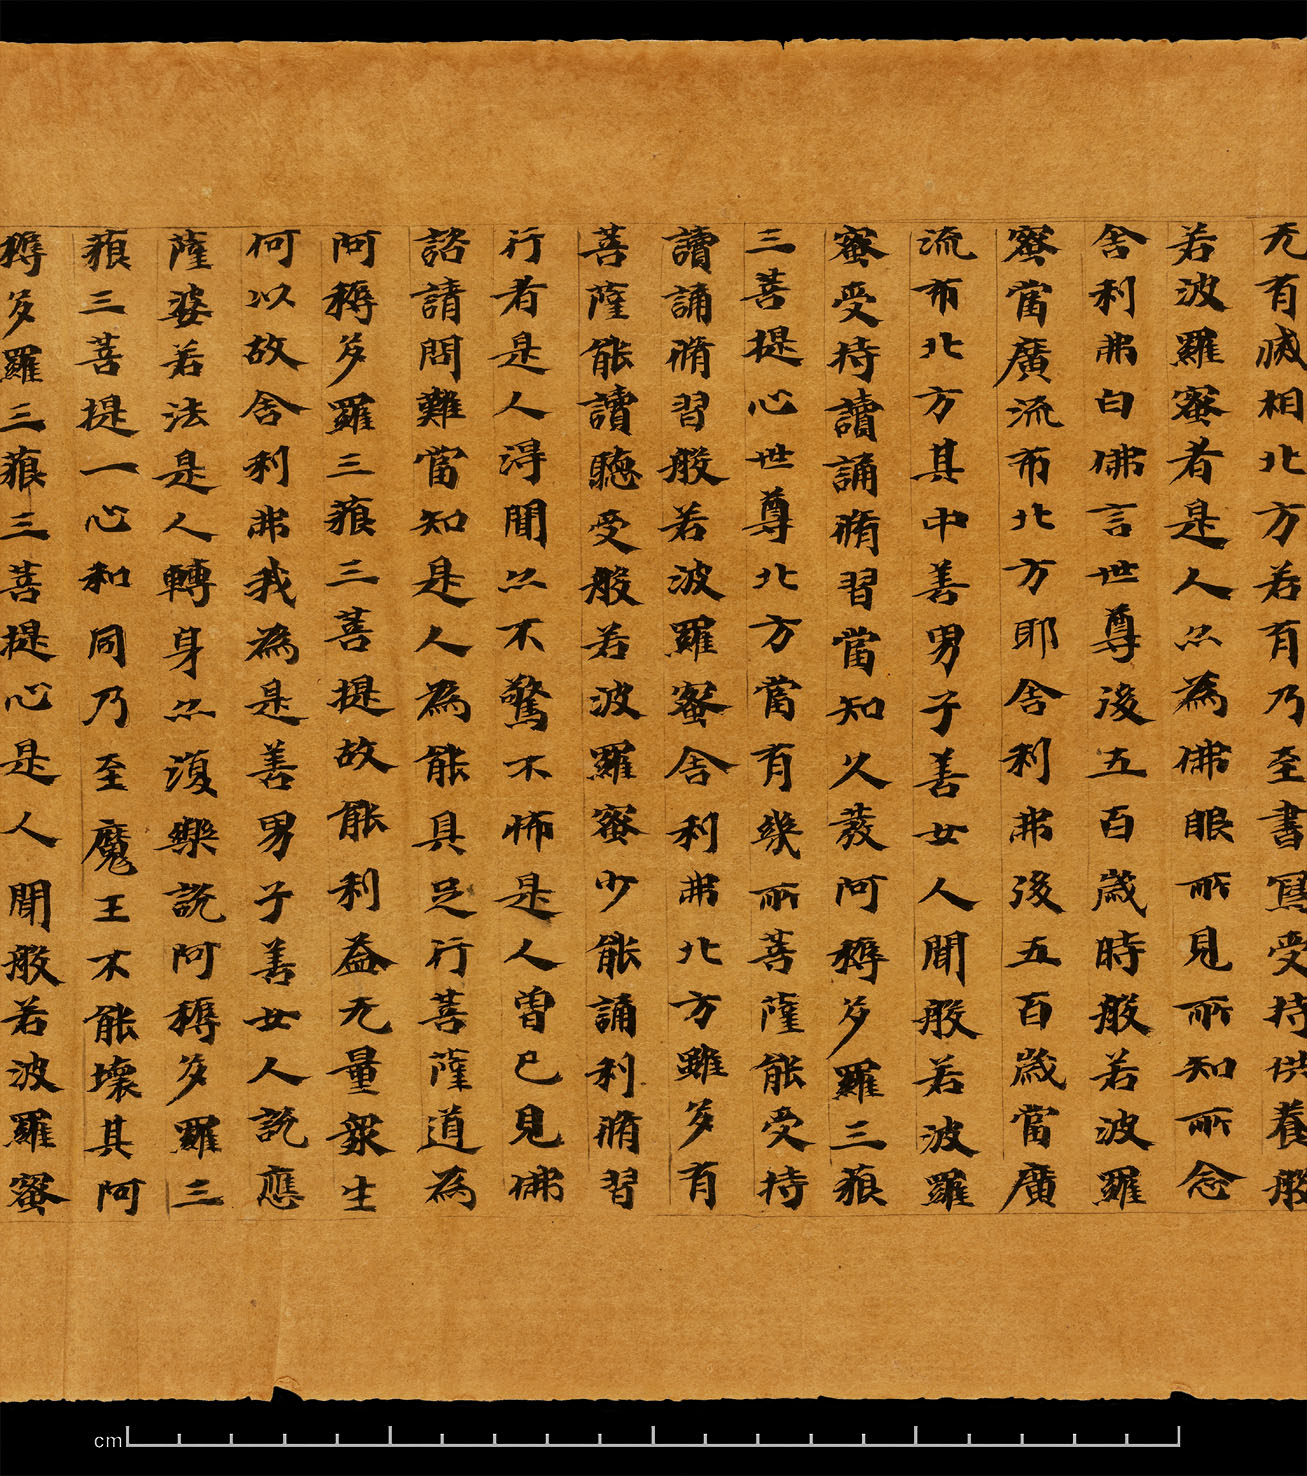 无有滅相北方若有乃至書寫受持供養般
若波羅蜜者是人亦為佛眼所見所知所念
舍利弗白佛言世尊後五百歲時般若波羅
蜜當廣流布北方耶舍利弗後五百歲當廣
流布北方其中善男子善女人聞般若波羅
蜜受持讀誦脩習當知久發阿耨多羅三藐
三菩提心世尊北方當有幾所菩薩能受持
讀誦脩習般若波羅蜜舍利弗北方雖多有
菩薩能讀聽受般若波羅蜜少能誦利脩習
行者是人得聞亦不驚不怖是人曾已見佛
諮請問難當知是人為能具足行菩薩道為
阿耨多羅三藐三菩提故能利益无量眾生
何以故舍利弗我為是善男子善女人說應
薩婆若法是人轉身亦復樂說阿耨多羅三
藐三菩提一心和同乃至魔王不能壞其阿
耨多羅三藐三菩提心是人聞般若波羅蜜
cm